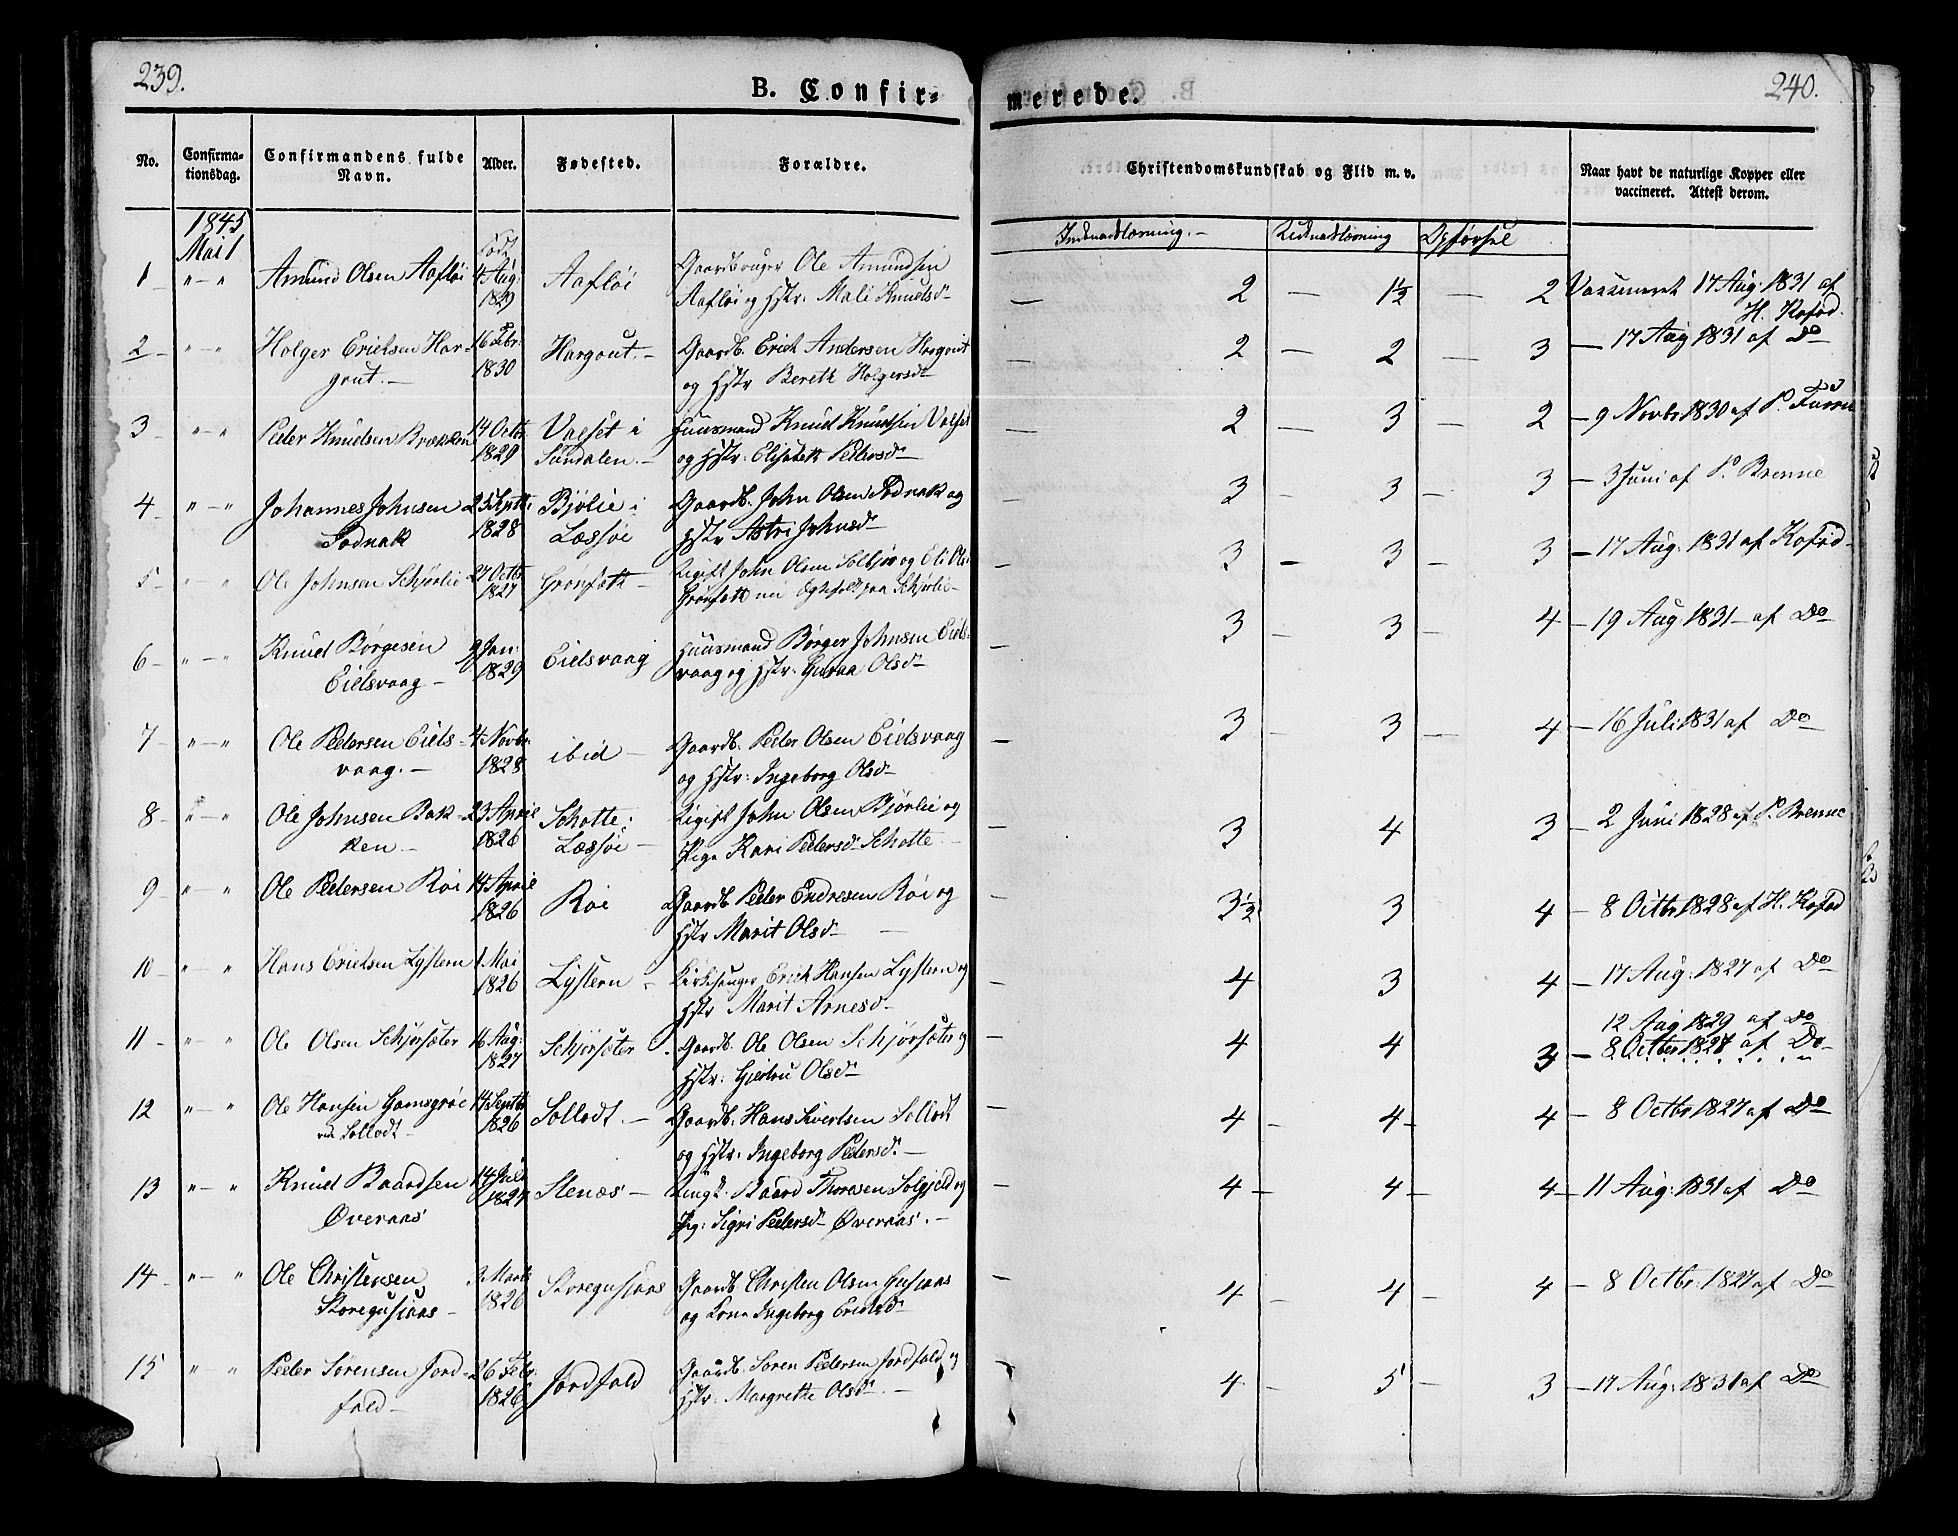 239.
240.
B. Confir-
merede.
No.
Confirma-
tionsdag.
Confirmandens fulde
Navn.
Alder.
Fødested.
Forældre.
Christendomskundskab og Flid m. v.
Naar havt de naturlige Kopper eller
vaccineret. Attest derom.
Indenadlæsning. -
Udenadlæsning
Opførsel
1845
Mai 1
1 " - " Amund Olsen Aafløi
Født
4 Aug:
1829
Aafløi
Gaardbruger Ole Amundsen
Aafløi og Hstr: Mali Knudsd-
2 - 1½ - 2
Vaccineret 17 Aug: 1831 af
H. Kofod.
2 " - " Holger Erichsen Har-
gout. -
16 Febr:
1830
Hargout. -
Gaardb. Erich Andersen Hargout
og Hstr Bereth Holgersd-
2 - 2 - 3
- 17 Aug 1831 af Do
3 " - " Peder Knudsen Brækken
14 Octbr
1829
Valset i
Sundalen. -
Huusmand Knud Knudsen Valset
og Hstr: Elisabeth Pedersd-
2 3 - 2
- 9 Novbr 1830 af P. Furru
4 " - " Johannes Johnsen
Sodnak
25 Septbr:
1828
Bjølie i
Læssøe
Gaardb. John Olsen Sodnak og
Hstr Astri Johnsd-
3 - 3 - 3
- 3 Juni af P. Brenne
5 " " Ole Johnsen Schjørlie
27 Octbr
1827
Grønfæth -
Ugift John Olsen Solbjør og Eli Ols:
Grønfæth nu Ægtefolk paa Schjørlie -
3 - 3 - 3
- 17 Aug: 1831 af Kofod -
6 " - " Knud Børgesen
Eielsvaag -
9 Jan:
1829
Eielsvaag
Huusmand Børger Johnsen Eiels-
vaag og Hstr: Guroa Olsd-
3 - 3 - 4
- 19 Aug 1831 - af Do
7 " - " Ole Pedersen Eiels-
vaag. -
4 Novbr:
1828
ibid -
Gaardb. Peder Olsen Eielsvaag
og Hstr: Ingeborg Olsd-
3 - 3 - 4
- 16 Juli 1831 af Do
8 " - " Ole Johnsen Bak-
ken -
23 April
1826
Schotte i
Læssøe -
Ugift John Olsen Bjørlie og
Pige Kari Pedersd- Schotte. -
3 4 3
- 2 Juni 1828 af P. Brenne
9 " - " Ole Pedersen Røi
14 April
1826
Røi
Gaardb Peder Endresen Røi og
Hstr Marit Olsd-
3½ 3 4
- 8 Octbr 1828 af H. Kofod
10 " - " Hans Erichsen Lystern
1 Mai
1826
Lystern -
Kirkesanger Erich Hansen Lystern og
Hstr Marit Arnesd-
4 3 4
- 17 Aug: 1827 af Do
11 " - " Ole Olsen Schjørsæter
16 Aug:
1827
Schjørsæter
Gaardb. Ole Olsen Schjørsæter og
Hstr: Gjertru Olsd-
4 4 3
12 Aug 1829 af Do
- 8 Octbr 1827 af Do -
12 " - " Ole Hansen
Sollodt -
14 Septbr
1826
Sollodt. -
Gaardb. Hans Sivertsen Sollodt
og Hstr: Ingeborg Pedersd. -
4 - 4 - 4
- 8 Octbr 1827 af Do
13 " - " Knud Baardsen
Øveraas
14 Juli
1827
Stenæs -
Ungk. Baard Thoresen Solgjeld og
Pig: Sigri Pedersd- Øveraas. -
4 - 4 - 4
- 11 Aug: 1831 af Do
14 " - " Ole Christensen
Storegusjaas -
3 Marts
1826
Storegusjaas
Gaardb. Christen Olsen Gusjaas
og Kone Ingeborg Erichsd-
4 - 4 - 4
- 8 Octbr: 1827 af Do
15 " - " Peder Sørensen Jord-
fald -
26 Febr:
1826
Jordfald
Gaardb. Søren Pedersen Jordfald og
Hstr: Margrethe Olsd. -
4 - 5 - 3
- 17 Aug: 1831 af Do